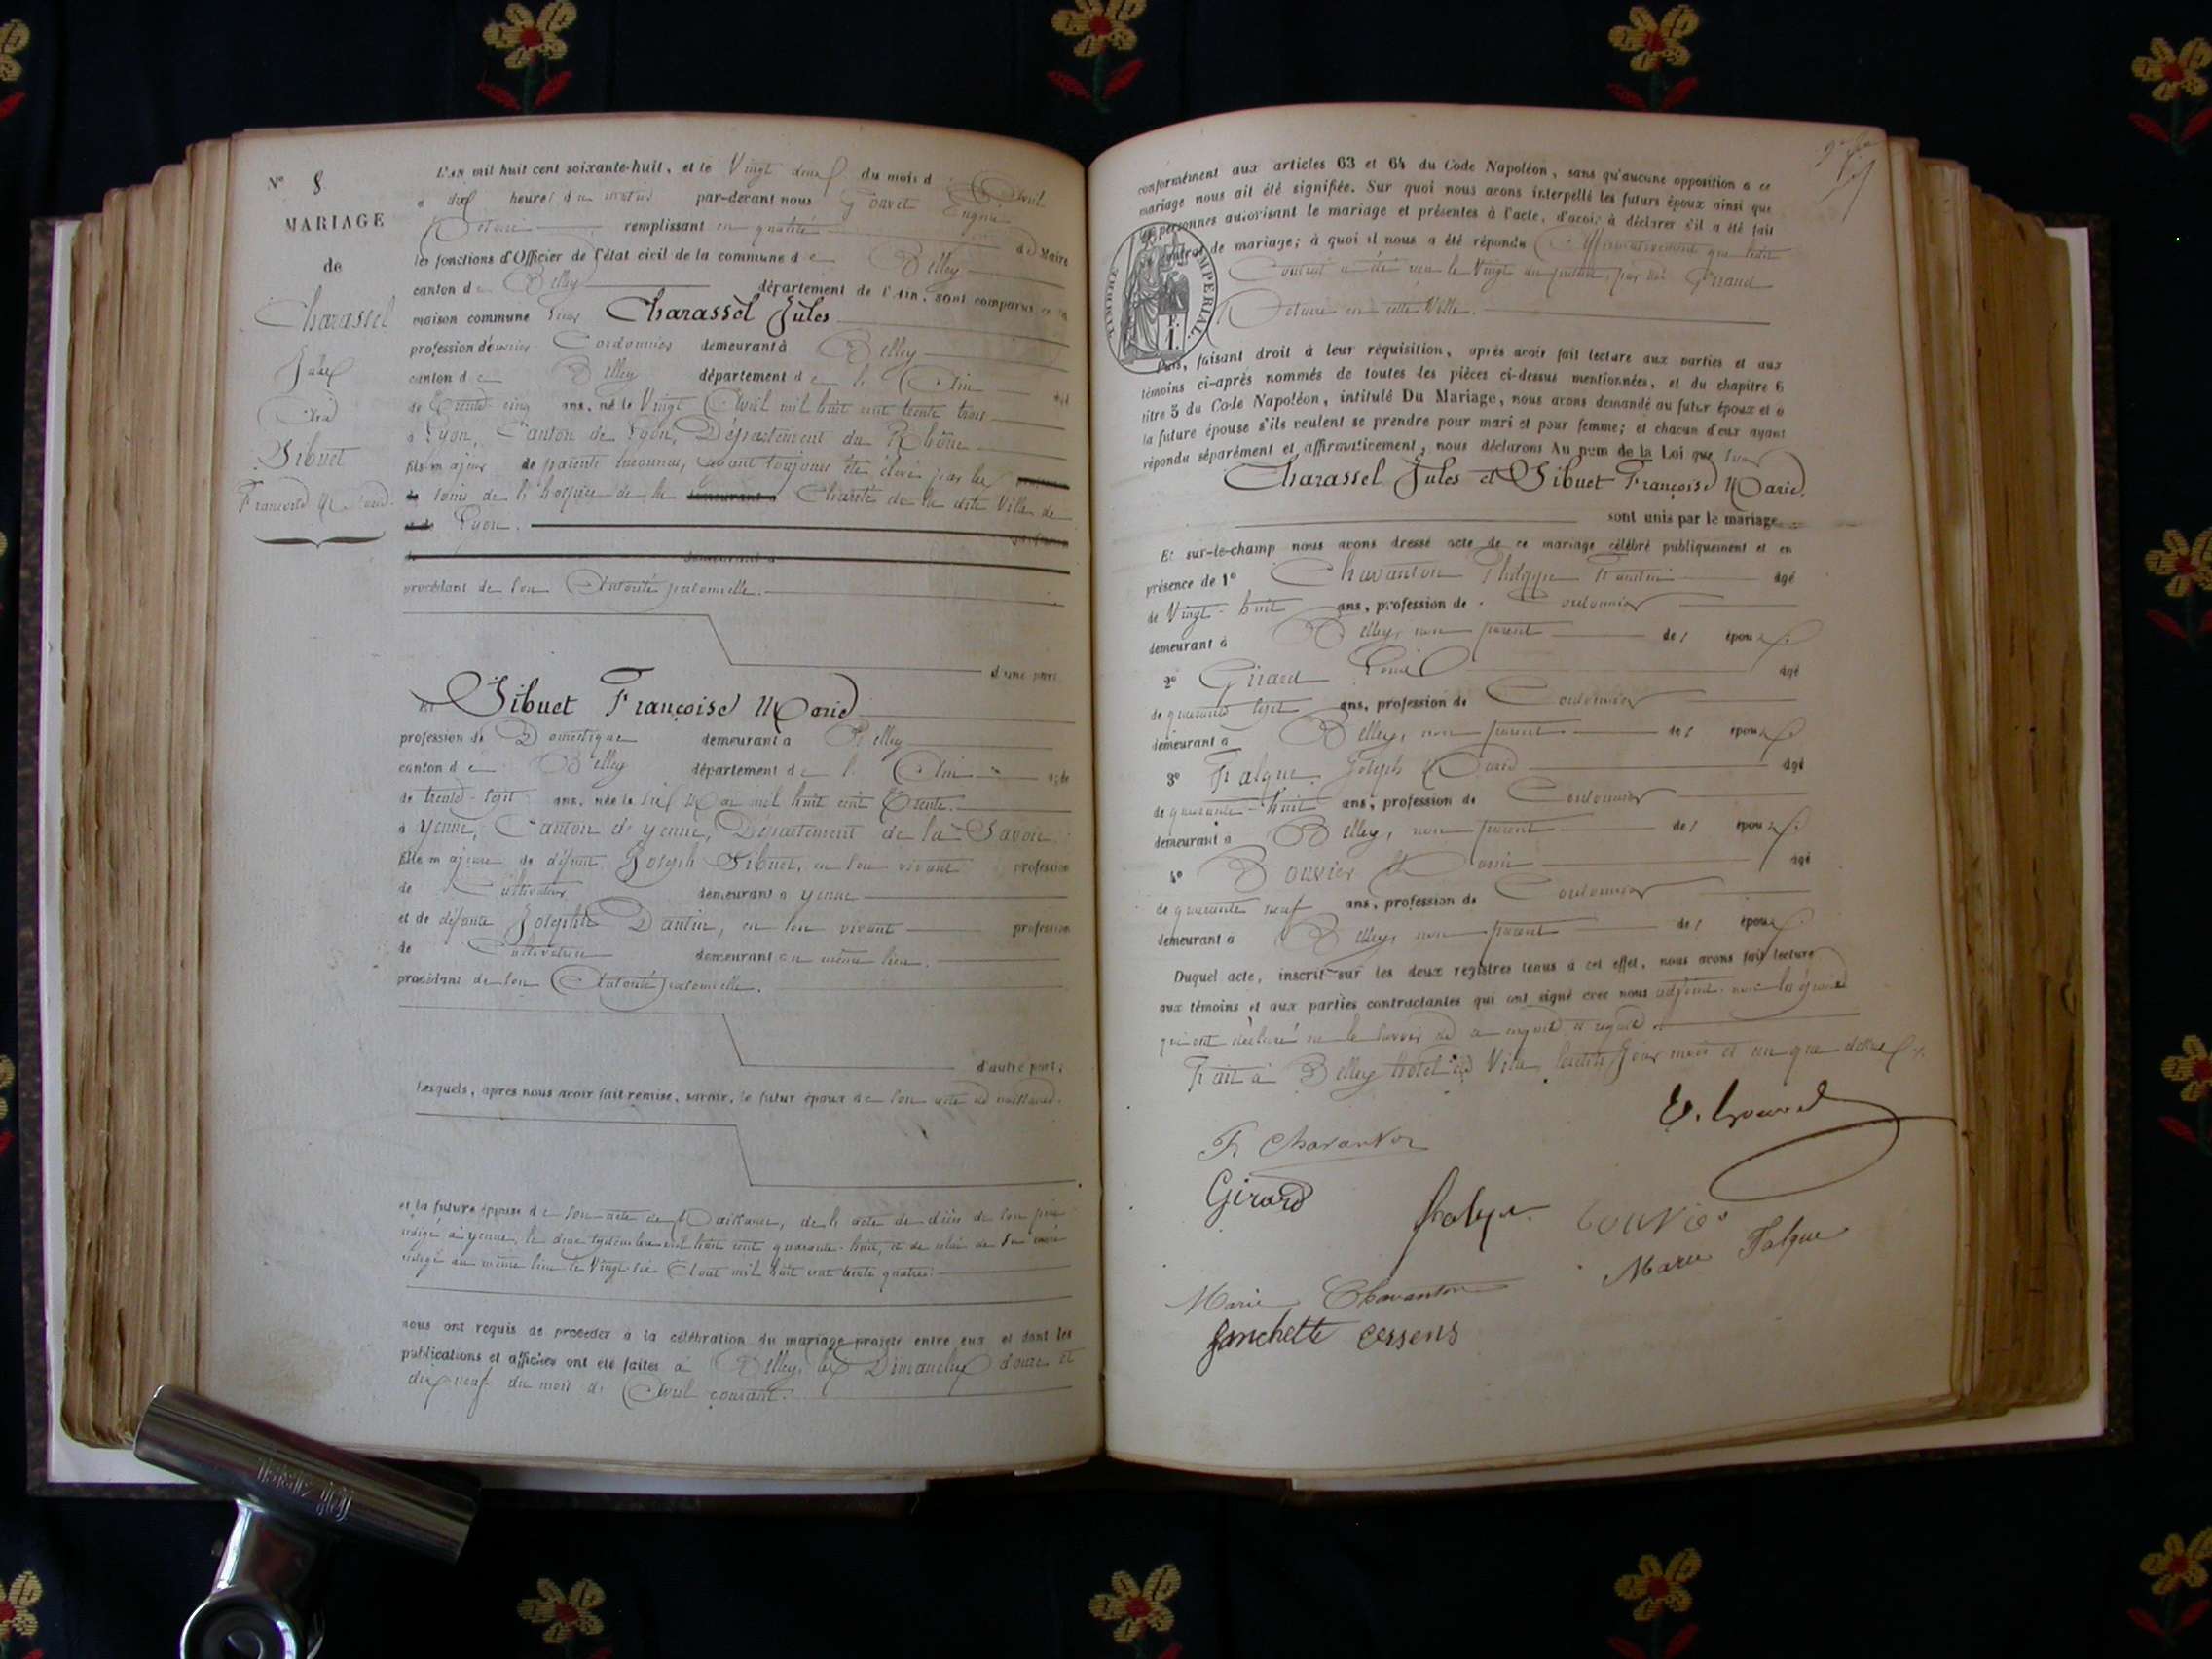 N° 8
MARIAGE
de
Charassel
Jules
Avec
Sibuet
Françoise Marie
L'AN mil huit cent soixante-huit, et le Vingt deux du mois d'Avril
à dix heures du matin par-devant nous Gouvet Eugène
Notaire remplissant en qualité d' de Maire
les fonctions d'Officier de l'état civil de la commune de Belley
canton de Belley département de l'Ain, sont comparus en la
maison commune Charassel Jules
profession d'ouvrier Cordonnier demeurant à Belley
canton de Belley département de l'Ain âgé
de trente cinq ans, né le Vingt Avril mil huit cent trente trois
à Lyon, Canton de Lyon, Département du Rhône
fils majeur de parents inconnus, ayant toujours été élevé par les
soins de l'hospice de la demeurant à Charité de la dite Ville de
Lyon.
demeurant à
procédant de son Autorité personnelle.
d'une part
Et Sibuet Françoise Marie
profession de Domestique demeurant à Belley
canton de Belley département de l'Ain âgée
de trente-sept ans, née le six Mai mil huit cent Trente
à Yenne, Canton de Yenne, Département de la Savoie
fille majeure de défunt Joseph Sibuet, en son vivant profession
de Cultivateur demeurant à Yenne
et de défunte Josephte Dantin, en son vivant profession
de Cultivatrice demeurant au même lieu.
procédant de son Autorité personnelle.
d'autre part;
Lesquels, après nous avoir fait remise, savoir, le futur époux de son acte de naissance.
et la future épouse de son acte de Naissance, de l'acte de décès de son père
rédigé à Yenne, le deux mil huit cent quarante-huit, et de celui de sa mère
rédigé au même lieu le Vingt six Août mil huit cent trente quatre.
nous ont requis de procéder à la célébration du mariage projeté entre eux et dont les
publications et affiches ont été faites à Belley, les Dimanches douze et
dix neuf du mois d'Avril courant.
conformément aux articles 63 et 64 du Code Napoléon, sans qu'aucune opposition à ce
mariage nous ait été signifiée. Sur quoi nous avons interpellé les futurs époux ainsi que
les personnes autorisant le mariage et présentes à l'acte, d'avoir à déclarer s'il a été fait
contrat de mariage; à quoi il nous a été répondu Affirmativement que ledit
Contrat a été reçu le Vingt du présent, par Me Girand
Notaire en cette Ville.
TIMBRE IMPÉRIAL.
F.
1.
Puis, faisant droit à leur réquisition, après avoir fait lecture aux parties et aux
témoins ci-après nommés de toutes les pièces ci-dessus mentionnées, et du chapitre 6
titre 5 du Code Napoléon, intitulé Du Mariage, nous avons demandé au futur époux et à
la future épouse s'ils veulent se prendre pour mari et pour femme; et chacun d'eux ayant
répondu séparément et affirmativement, nous déclarons Au nom de la Loi que
Charassel Jules et Sibuet Françoise Marie.
sont unis par le mariage
Et sur-le-champ nous avons dressé acte de ce mariage célébré publiquement et en
présence de 1° Chavanton Philippe âgé
de Vingt-huit ans, profession de Cordonnier
demeurant à Belley, non parent des époux.
2° Girard Louis âgé
de quarante sept ans, profession de Cordonnier
demeurant à Belley, non parent des époux.
3° Falque Joseph Marie âgé
de quarante-huit ans, profession de Cordonnier
demeurant à Belley, non parent des époux.
4° Bouvier âgé
de quarante neuf ans, profession de Cordonnier
demeurant à Belley, non parent des époux.
Duquel acte, inscrit sur les deux registres tenus à cet effet, nous avons fait lecture
aux témoins et aux parties contractantes qui ont signé avec nous adjoint non les époux
qui ont déclaré ne le savoir de ce enquis et requis.
Fait à Belley hotel de Ville, lesdits jour mois et an que dessus.
E. Gouvet
F. Chavanton
Girard
Falque
bouvier
Marie Falque
Marie Chavanton
fanchette cessens